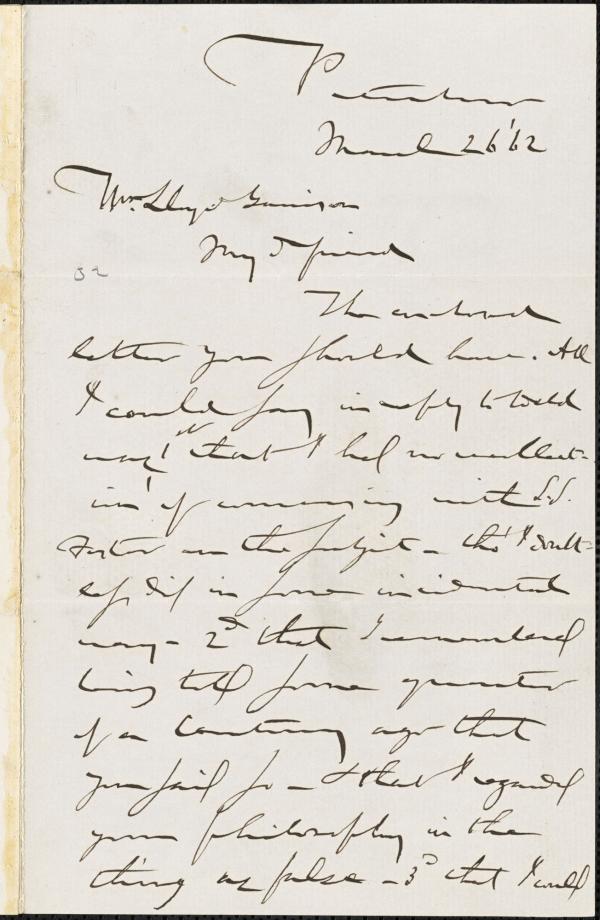 Peterboro
March 26 '62
Wm. Lloyd Garrison
My D friend
32
The enclosed
letter you should have. All
I could say in reply to Weld
was, 1st that I had no recollect-
ion of conversing with S.S.
Foster on the subject - tho' I doubt-
less did in some incidental
way - 2d that I remembered
being told some quarter
of a century ago that
you said so - & that I regarded
your philosophy in the
thing as false - 3d that I could